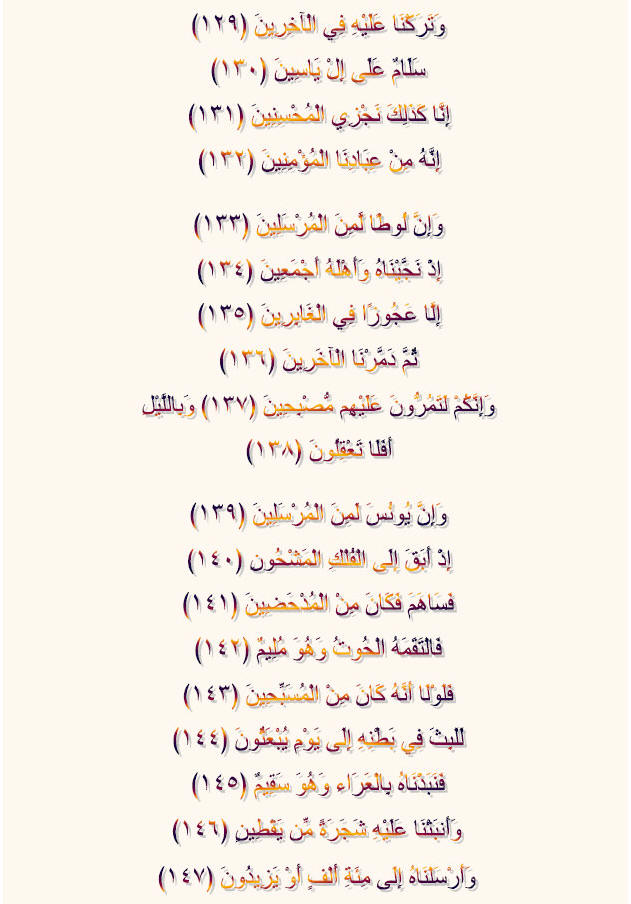 وَتَرَكْنَا عَلَيْهِ فِي الْآخِرِينَ (١٢٩)
سَلَامٌ عَلَى إِلْ يَاسِينَ (١٣٠)
إِنَّا كَذَلِكَ نَجْزِي الْمُحْسِنِينَ (١٣١)
إِنَّهُ مِنْ عِبَادِنَا الْمُؤْمِنِينَ (١٣٢)
وَإِنَّ لُوطًا لَّمِنَ الْمُرْسَلِينَ (١٣٣)
إِذْ نَجَّيْنَاهُ وَأَهْلَهُ أَجْمَعِينَ (١٣٤)
إِلَّا عَجُوزًا فِي الْغَابِرِينَ (١٣٥)
ثُمَّ دَمَّرْنَا الْآخَرِينَ (١٣٦)
وَإِنَّكُمْ لَتَمُرُّونَ عَلَيْهِم مُّصْبِحِينَ (١٣٧) وَبِاللَّيْلِ
أَفَلَا تَعْقِلُونَ (١٣٨)
وَإِنَّ يُونُسَ لَمِنَ الْمُرْسَلِينَ (١٣٩)
إِذْ أَبَقَ إِلَى الْفُلْكِ الْمَشْحُونِ (١٤٠)
فَسَاهَمَ فَكَانَ مِنْ الْمُدْحَضِينَ (١٤١)
فَالْتَقَمَهُ الْحُوتُ وَهُوَ مُلِيمٌ (١٤٢)
فَلَوْلَا أَنَّهُ كَانَ مِنْ الْمُسَبِّحِينَ (١٤٣)
لَلَبِثَ فِي بَطْنِهِ إِلَى يَوْمِ يُبْعَثُونَ (١٤٤)
فَنَبَذْنَاهُ بِالْعَرَاء وَهُوَ سَقِيمٌ (١٤٥)
وَأَنبَتْنَا عَلَيْهِ شَجَرَةً مِّن يَقْطِينٍ (١٤٦)
وَأَرْسَلْنَاهُ إِلَى مِئَةِ أَلْفٍ أَوْ يَزِيدُونَ (١٤٧)